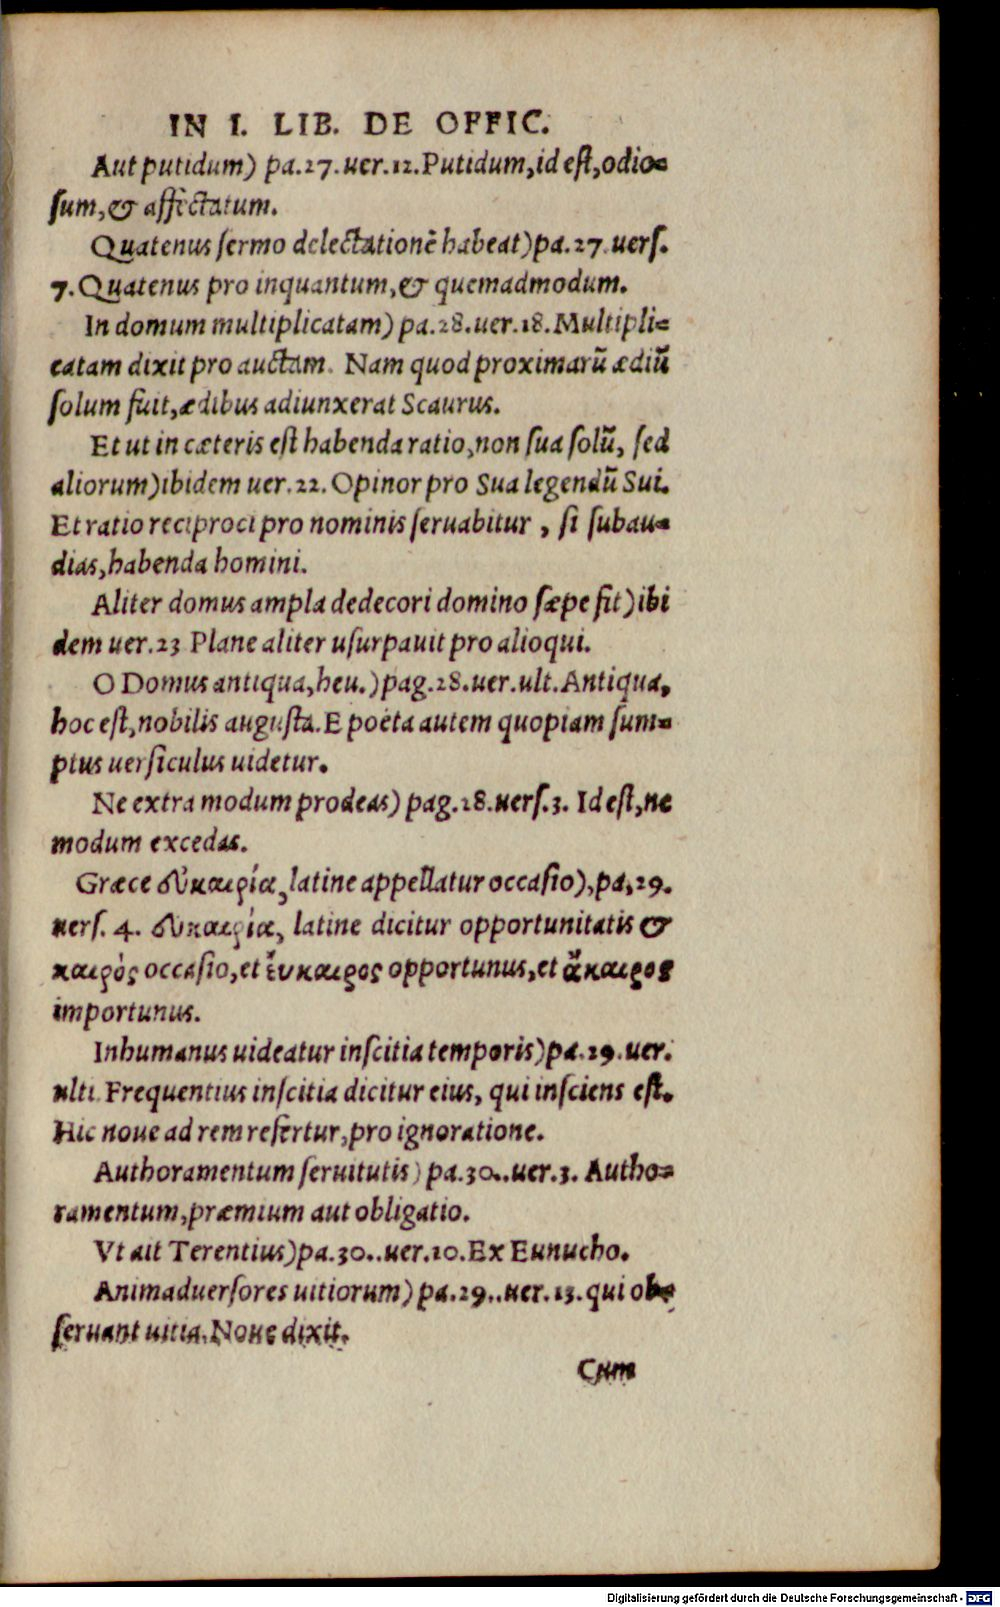 IN I. LIB. DE OFFIC.
Aut putidum) pa.27.uer.12.Putidum,id eſt,odio⸗
ſum,& affectatum.
Quatenus ſermo delectationē habeat)pa.27.uerſ.
7.Quatenus pro inquantum,& quemadmodum.
In domum multiplicatam) pa.28.uer.18.Multipli⸗
catam dixit pro auctam. Nam quod proximarū ædiū
ſolum fuit,ædibus adiunxerat Scaurus.
Et ut in cæteris eſt habenda ratio,non ſua ſolū, ſed
aliorum)ibidem uer.22.Opinor pro Sua legendū Sui.
Et ratio reciproci pro nominis ſeruabitur , ſi ſubau⸗
dias,habenda homini.
Aliter domus ampla dedecori domino ſæpe fit)ibi
dem uer.23 Plane aliter uſurpauit pro alioqui.
O Domus antiqua,heu.)pag.28.uer.ult.Antiqua,
hoc eſt,nobilis auguſta.E poëta autem quopiam ſum⸗
ptus uerſiculus uidetur.
Ne extra modum prodeas) pag.28.uerſ.3. Id eſt,ne
modum excedas.
Græce εὐκαιρία,latine appellatur occaſio),pa,29.
uerſ. 4. εὐκαιρία, latine dicitur opportunitatis &
καιρὸς occaſio,et εὔκαιρος opportunus,et ἄκαιρος
importunus.
Inhumanus uideatur inſcitia temporis)pa.29.uer.
ulti.Frequentius inſcitia dicitur eius, qui inſciens eſt.
Hic noue ad rem refertur,pro ignoratione.
Authoramentum ſeruitutis) pa.30..uer.3. Autho⸗
ramentum,præmium aut obligatio.
Vt ait Terentius)pa.30..uer.10.Ex Eunucho.
Animaduerſores uitiorum) pa.29..uer.13.qui ob⸗
ſeruant uitia.Noue dixit.
Cum
Digitalisierung gefördert durch die Deutsche Forschungsgemeinschaft - DFG